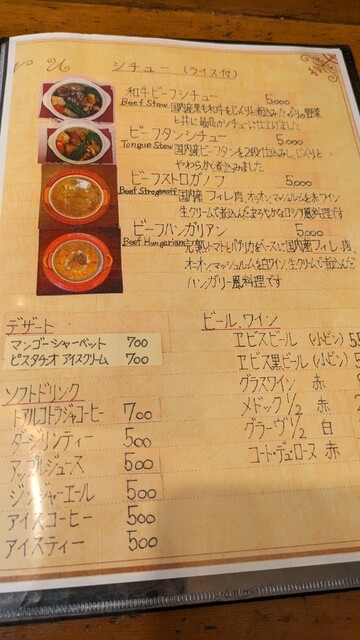 シチュー (ライス付)
和牛ビーフシチュー 5,000
Beef Stew 国内産黒毛和牛をじっくり煮込みたっぷりの野菜
と共に最高のシチューに仕上げました
ビーフタンシチュー 5,000
Tongue Stew 国内産ビーフタンを2段仕込みし、じっくりと
やわらかく煮込みました
ビーフストロガノフ 5,000
Beef Stroganoff 国内産フィレ肉、オニオン、マッシュルームを赤ワイン
生クリームで煮込んだまろやかなロシア風料理です
ビーフハンガリアン 5,000
Beef Hungarian 完熟トマトとパプリカをベースに国内産フィレ肉、
オニオン、マッシュルームを白ワイン、生クリームで煮込んだ
ハンガリー風料理です
デザート
マンゴーシャーベット 700
ピスタチオアイスクリーム 700
ソフトドリンク
トアルコトラジャコーヒー 700
ダージリンティー 500
アップルジュース 500
ジンジャーエール 500
アイスコーヒー 500
アイスティー 500
ビール、ワイン
ヱビスビール (小ビン)
ヱビス黒ビール (小ビン)
グラスワイン 赤
メドック 1/2 赤
グラーヴ 1/2 白
コート・デュ・ローヌ 赤